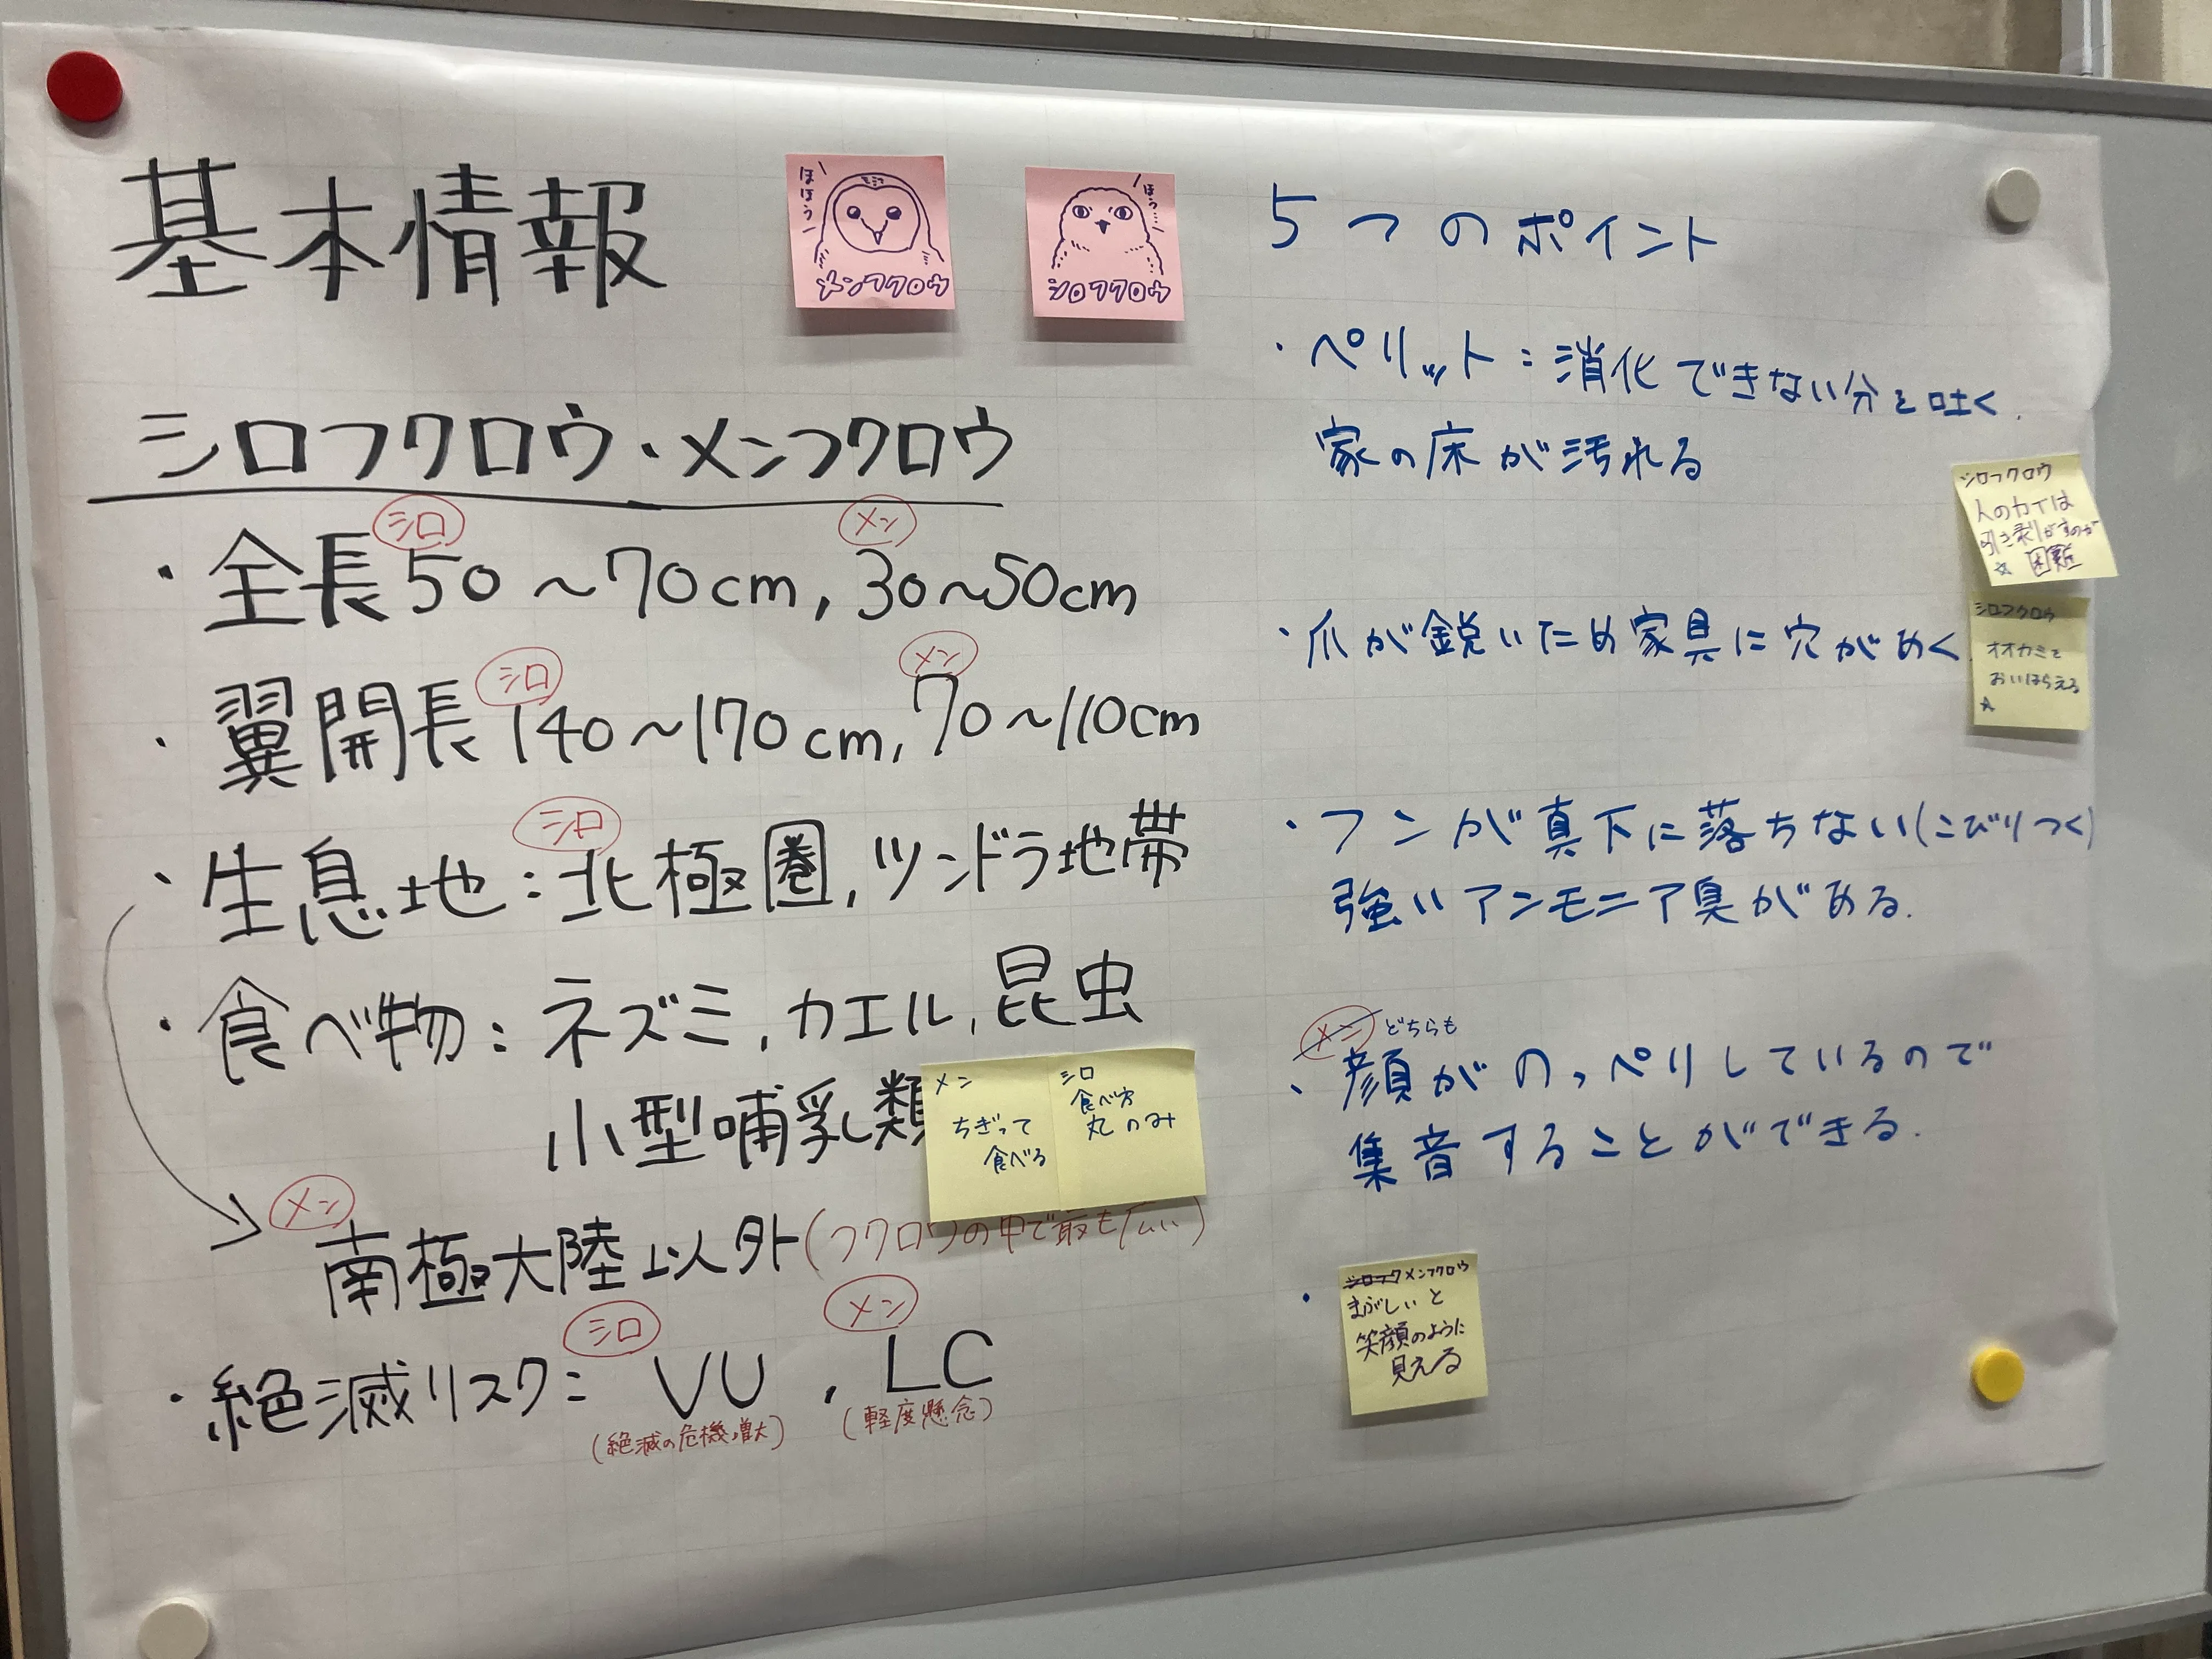 基本情報
ほほう
メンフクロウ
ほう…
シロフクロウ
シロフクロウ・メンフクロウ
シロ メン
・全長 50~70cm, 30~50cm
シロ メン
・翼開長 140~170cm, 70~110cm
シロ
・生息地:北極圏, ツンドラ地帯
・食べ物:ネズミ, カエル, 昆虫
小型哺乳類
メン
ちぎって
食べる
シロ
食べ方
丸のみ
メン
南極大陸以外(フクロウの中で最も広い)
シロ メン
・絶滅リスク: VU , LC
(絶滅の危機増大) (軽度懸念)
5つのポイント
・ペリット:消化できない分を吐く.
家の床が汚れる
シロフクロウ
人の力では
引き剥がすのが
☆ 困難
・爪が鋭いため家具に穴があく
シロフクロウ
オオカミを
おいはらえる
☆
・フンが真下に落ちない(こびりつく)
強いアンモニア臭がある.
メン どちらも
・顔がのっぺりしているので
集音することができる.
・
シロフク メンフクロウ
まぶしいと
笑顔のように
見える